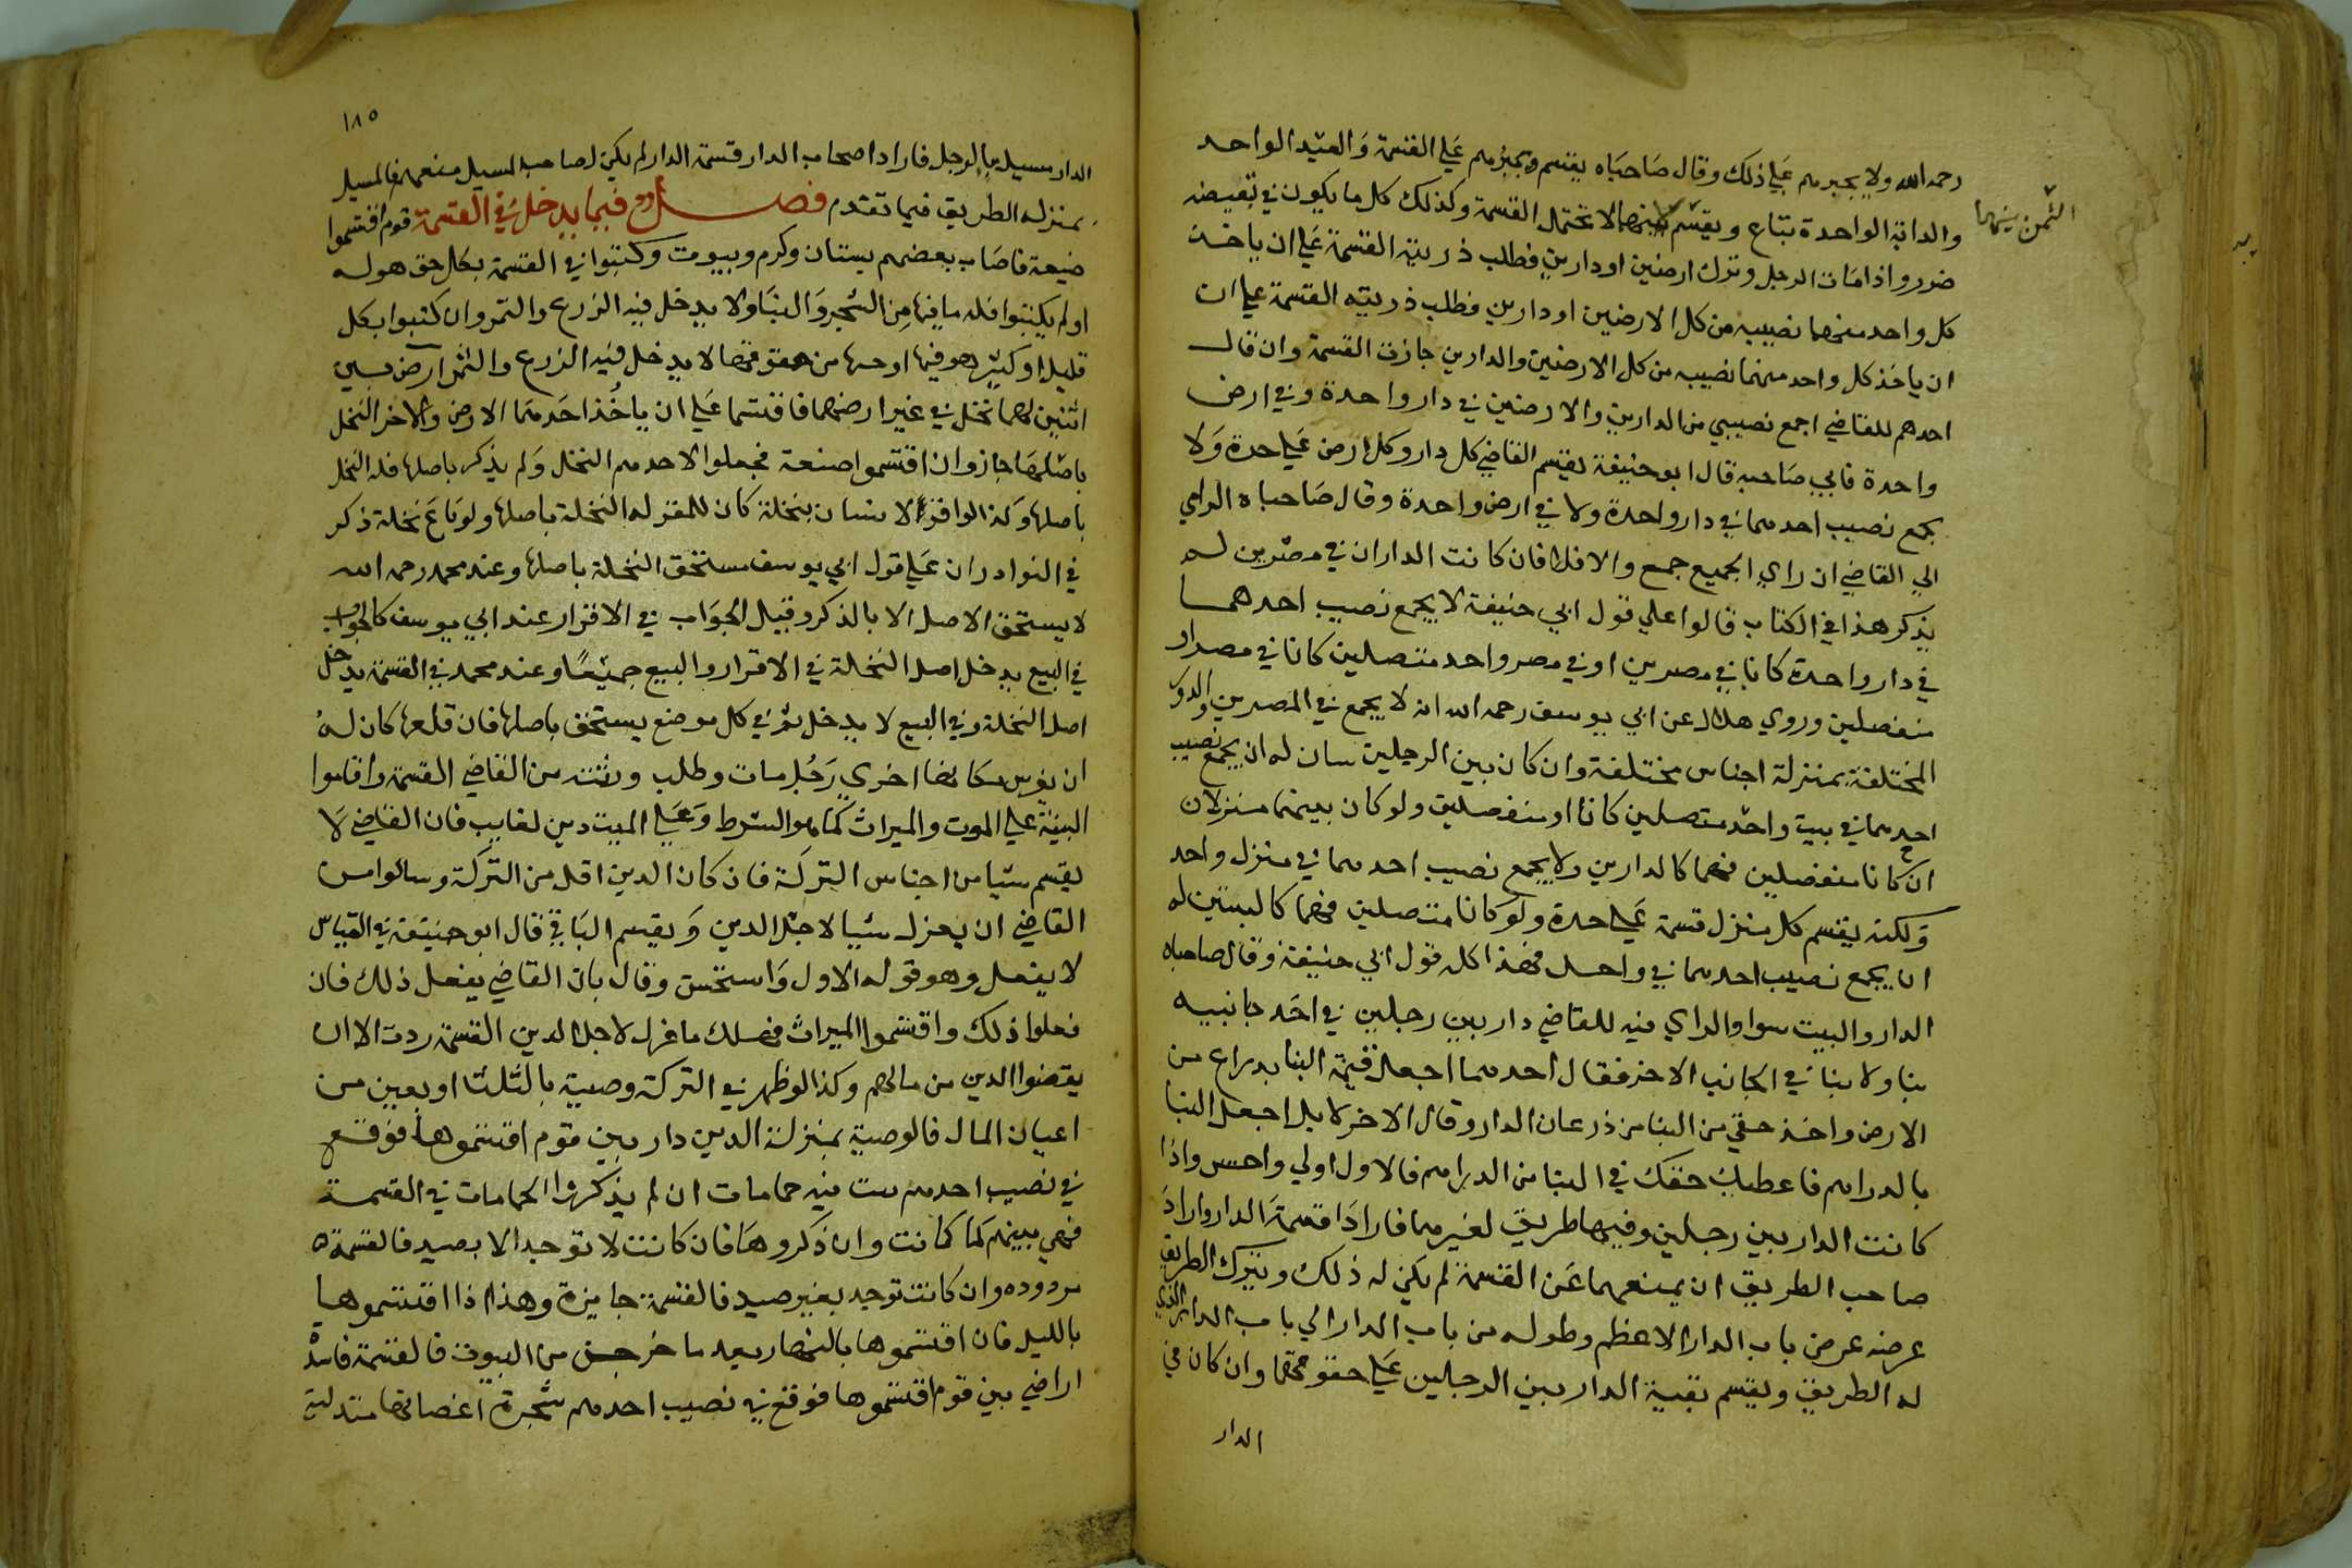 رحمه الله ولا يجبرهم علي ذلك وقال صاحباه يقسم ويجبرهم علي القسمة والعبد الواحد
والدابة الواحدة تباع ويقسم الثمن بينهما لا تحتمل القسمة وكذلك كل ما يكون في تبعيضه
ضرر واذا مات الرجل وترك ارضين او دارين فطلب ذريته القسمة علي ان ياخذ
كل واحد منهما نصيبه من كل الارضين او دارين فطلب ذريته القسمة علي ان
ان ياخذ كل واحد منهما نصيبه من كل الارضين والدارين جازت القسمة وان قال
احدهم للقاضي اجمع نصيبي من الدارين والارضين في دار واحدة وفي ارض
واحدة فابي صاحبه قال ابو حنيفة يقسم القاضي كل دار وكل ارض علي حدة ولا
يجمع نصيب احدهما في دار واحدة ولا في ارض واحدة وقال صاحباه الراي
الي القاضي ان راي الجميع جمع والا فلا فان كانت الداران في مصرين لم
يذكر هذا في الكتاب قالوا علي قول ابي حنيفة لا يجمع نصيب احدهما
في دار واحدة كانا في مصرين او في مصر واحد متصلين كانا في مصر او
منفصلين وروي هلال عن ابي يوسف رحمه الله انه لا يجمع في المصرين والدور
المختلفة بمنزلة اجناس مختلفة وان كان بين الرجلين بيتان له ان يجمع نصيب
احدهما في بيت واحد متصلين كانا او منفصلين ولو كان بينهما منزلان
ان كانا منفصلين فهما كالدارين ولا يجمع نصيب احدهما في منزل واحد
ولكنه يقسم كل منزل قسمة علي حدة ولو كانا متصلين فهما كالبيتين له
ان يجمع نصيب احدهما في واحد فهذا كله قول ابي حنيفة وقال صاحباه
الدار والبيت سوا والراي فيه للقاضي دار بين رجلين في احد جانبيه
بنا ولا بنا في الجانب الاخر فقال احدهما اجعل قيمة البنا بدراع من
الارض واخذ حقي من البنا من ذرعان الدار وقال الاخر لا بل اجعل البنا
بالدراهم فاعطيك حقك في البنا من الدراهم فالاول اولي واحسن واذا
كانت الدار بين رجلين وفيها طريق لغيرهما فارادا قسمة الدار واراد
صاحب الطريق ان يمنعهما عن القسمة لم يكن له ذلك ويترك الطريق
عرضه عرض باب الدار الاعظم وطوله من باب الدار الي باب الدار الذي
له الطريق ويقسم بقية الدار بين الرجلين علي حقوقهما وان كان في
الدار
الثمن بينهما
١٨٥
الدار مسيل ما لرجل فاراد اصحاب الدار قسمة الدار لم يكن لصاحب المسيل منعهم فالمسيل
بمنزله الطريق فيما تقدم فصل فيما يدخل في القسمة قوم اقتسموا
ضيعة فاصاب بعضهم بستان وكرم وبيوت وكتبوا في القسمة بكل حق هو له
او لم يكتبوا فله ما فيها من الشجر والبنا ولا يدخل فيه الزرع والثمر وان كتبوا بكل
قليل او كثير هو فيها او منها من حقوقها لا يدخل فيه الزرع والثمر ارض بين
اثنين لهما نخل في غير ارضهما فاقتسما علي ان ياخذ احدهما الارض والاخر النخل
باصلها جاز وان اقتسموا ضيعة فجعلوا لاحدهم النخل ولم يذكر باصلها فله النخل
باصلها وكذا لو اقر لانسان بنخلة كان للمقر له النخلة باصلها ولو باع نخلة ذكر
في النوادر ان علي قول ابي يوسف يستحق النخلة باصلها وعند محمد رحمه الله
لا يستحق الاصل الا بالذكر وقيل الجواب في الاقرار عند ابي يوسف كالجواب
في البيع يدخل اصل النخلة في الاقرار والبيع جميعا وعند محمد في القسمة يدخل
اصل النخلة وفي البيع لا يدخل ثم في كل موضع يستحق باصلها فان قلعها كان له
ان يغرس مكانها اخري رجل مات وطلب ورثته من القاضي القسمة واقاموا
البينة علي الموت والميراث كما هو الشرط وعلي الميت دين لغايب فان القاضي لا
يقسم شيا من اجناس التركة فان كان الدين اقل من التركة وسالوا من
القاضي ان يعزل شيا لاجل الدين ويقسم الباقي قال ابو حنيفة في القياس
لا يفعل وهو قوله الاول واستحسن وقال بان القاضي يفعل ذلك فان
فعلوا ذلك واقتسموا الميراث فهلك ما عزل لاجل الدين القسمة ردت الا ان
يقضوا الدين من مالهم وكذا لو ظهر في التركة وصية بالثلث او بعين من
اعيان المال فالوصية بمنزلة الدين دار بين قوم اقتسموها فوقع
في نصيب احدهم بيت فيه حمامات ان لم يذكروا الحمامات في القسمة
فهي بينهم كما كانت وان ذكروها فان كانت لا توجد الا بصيد فالقسمة
مردوده وان كانت توجد بغير صيد فالقسمة جايزة وهذا اذا اقتسموها
بالليل فان اقتسموها بالنهار بعد ما خرجن من البيوت فالقسمة فاسدة
اراضي بين قوم اقتسموها فوقع في نصيب احدهم شجرة اغصانها متدلية